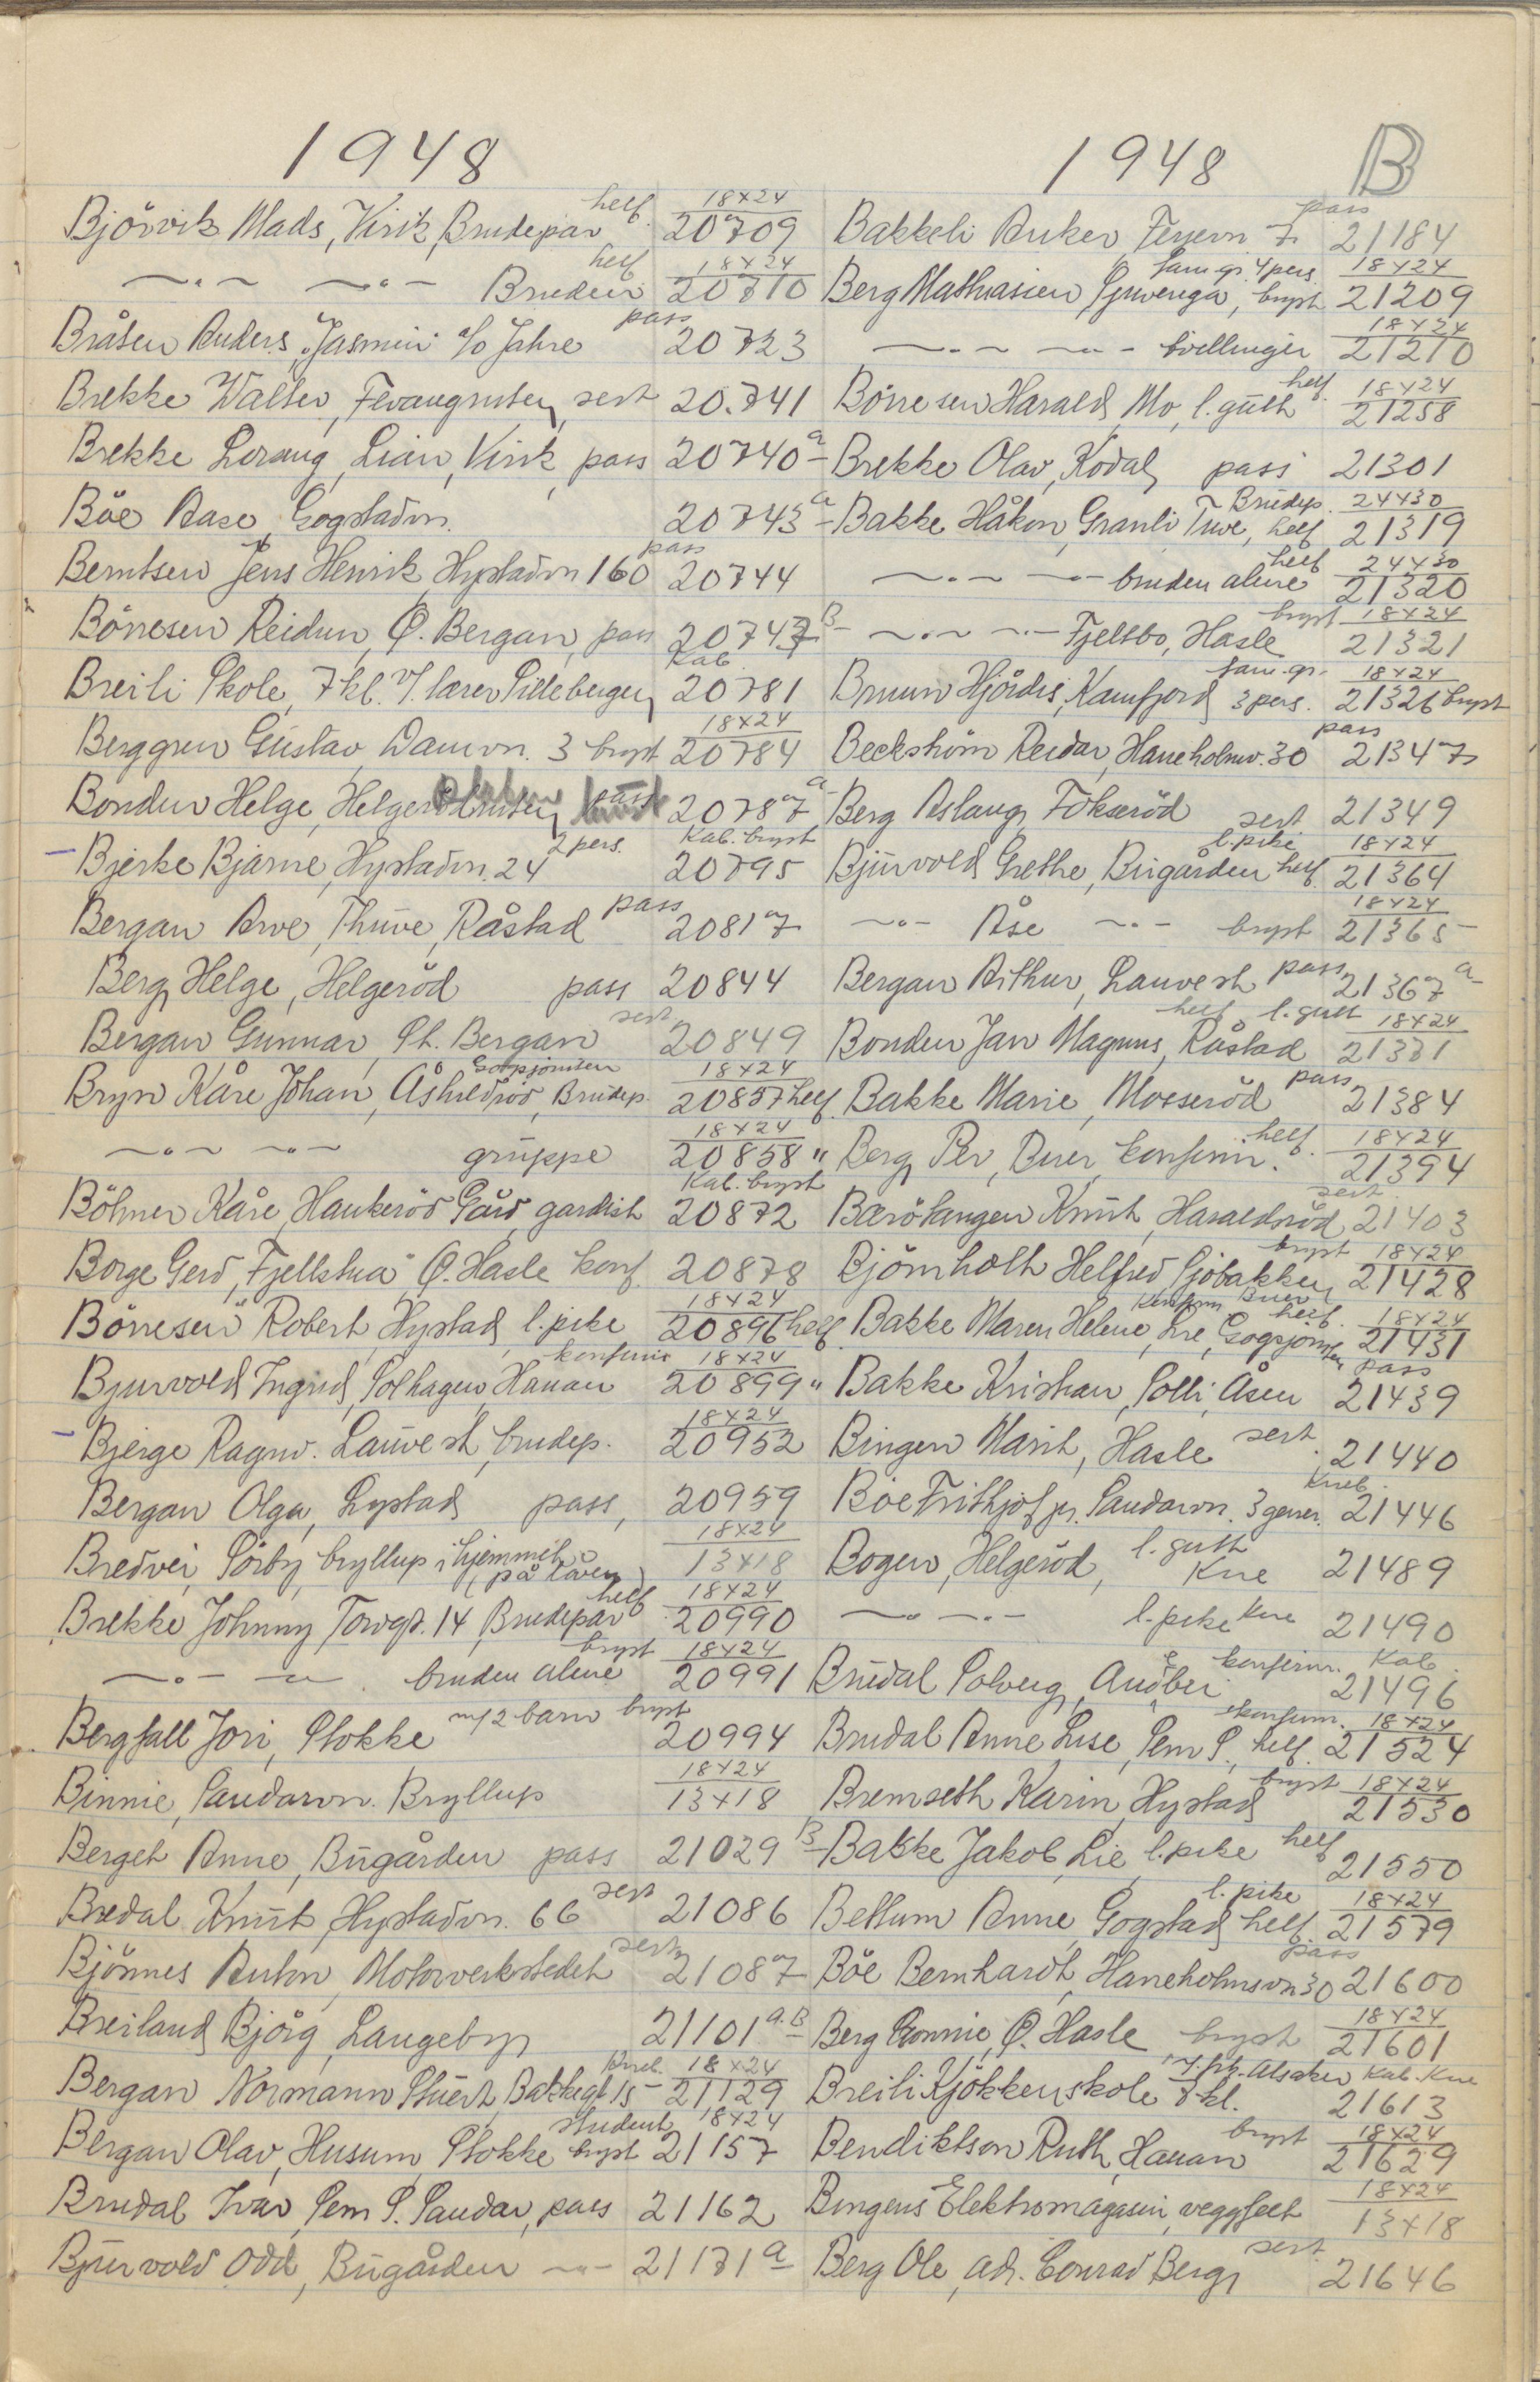 1948
Bjørvik Mads, Virik, Brudepar helf. 18x24 20709
— " — — " — Bruden helf 18x24 20710
Bråten Anders "Jasmin" c/o Jahre pass 20723
Brekke Walter, Fevangruten, sert 20.741
Brekke Lorang, Lian, Virik, pass 20740 a
Böe Aase Gogstadvn. 20743 a
Berntsen Jens Henrik, Hystadvn 160 pass 20744
Börresen Reidun, Ø. Bergan, pass 20747 B
Breili Skole, 7 kl. v/ lærer Silleberger, Kab. 20781
Berggren Gustav, Damvn. 3 bryst 18x24 20784
Bonden Helge, pass 20787 a
Bjerke Bjarne, Hystadvn. 24 2 pers. Kab. bryst 20795
Bergan Arve, Thuve, Råstad pass 20817
Berg Helge, Helgeröd pass 20844
Bergan Gunnar, St. Bergan sert. 20849
Bryn Kåre Johan, Brudep. 18x24 20857 helf.
— " — — " — gruppe 18x24 20858 "
Böhmer Kåre, Haukeröd Gård, gardist Kab. bryst 20872
Borge Gerd, "Fjellstua" Ø. Hasle konf. 20878
Börresen Robert, Hystad, l. pike 18x24 20896 helf.
Bjurvold Ingrid, Solhagen, Hauan konfirm 18x24 20899 "
Bjerge Ragnv. Lauve st, brudep. 18x24 20952
Bergan Olga, Lystad, pass, 20959
Bredvei, Sörby, bryllup i hjemmet (på låven) 18x24 13x18
Brekke Johnny, Torvgt. 14, Brudepar helf 18x24 20990
— " — — " — bruden alene bryst 18x24 20991
Bergfall Jori, Stokke m/2 barn bryst 20994
Binnie, Sandarvn. Bryllup 18x24 13x18
Berget Anne, Bugården pass 21029 B
Bredal Knut, Hystadvn. 66 sert 21086
Bjönnes Anton, Motorverkstedet sert 21087
Breiland Björg, Langeby 21101 a.B
Bergan Normann Stuert, Bakkegt 15 Kneb. 18x24 21129
Bergan Olav, Husum, Stokke student bryst 18x24 21157
Brudal Ivar, Sem S. Sandar, pass 21162
Bjurvold Odd, Bugården — " — 21171 a
1948 B
Bakkeli Anker, 7 pass 21184
Berg Mathiasen, bryst fam gr. 4 pers. 18x24 21209
— " — — " — tvillinger 18x24 21210
Börresen Harald, Mo, l. gutt helf. 18x24 21258
Brekke Olav, Kodal, pass 21301
Bakke Håkon, Granli Tuve, helf ~ Brudep. 24x30 21319
— " — — " — bruden alene helf 24x30 21320
— " — — " — Fjeltbo, Hasle bryst 18x24 21321
Bruun Hjördis, Kamfjord, fam. gr. 3 pers. 18x24 21326 bryst
Beckström Reidar, Haneholmv. 30 pass 21347
Berg Aslaug, Fokseröd sert 21349
Bjurvold Grethe, Bugården l. pike helf. 18x24 21364
— " — Åse — " — bryst 18x24 21365
Bergan Arthur, Lauve st pass 21367 a
Bonden Jan Magnus, Råstad helf. l. gutt 18x24 21371
Bakke Marie, Moeseröd pass 21384
Berg Per, Buer, konfirm. helf. 18x24 21394
Knut, Haraldsröd sert 21403
Björnholt Helfred Sjöbakken, bryst 18x24 21428
Bakke Maren Helene, Konfirm Buer helf. 18x24 21431
Bakke Kristian, Solli, Åsen pass 21439
Bingen Marit, Hasle sert. 21440
Böe Frithjof jr. Sandarvn. 3 gener. Kneb. 21446
Bogen, Helgeröd, l. gutt Kne 21489
— " — — " — l. pike Kne 21490
Brudal Solveig, konfirm. Kab. 21496
Brudal Anne Lise, Sem S., konfirm. helf. 18x24 21524
Bremseth Karin, Hystad bryst 18x24 21530
Bakke Jakob, Lie, l. pike helf 21550
Bettum Anne, Gogstad, l. pike helf. 18x24 21579
Böe Bernhardt, Haneholmsvn 30 pass 21600
Berg Connie, Ø. Hasle bryst 18x24 21601
Breili Kjökkenskole 8 kl. m. frk. Alsaker Kab. Kne 21613
Bendiktson Ruth, Hauan bryst 18x24 21629
Bingens Elektromagasin, veggfelt 18x24 13x18
Berg Ole, adr. Conrad Berg, sert. 21646